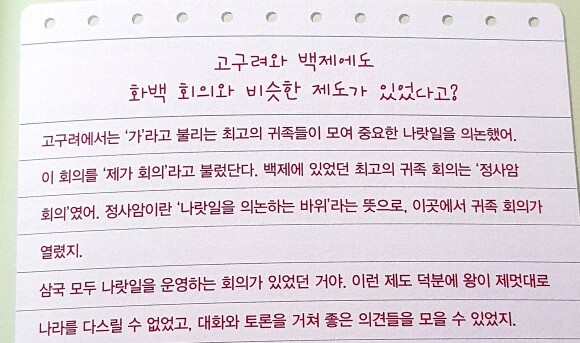 고구려와 백제에도
화백 회의와 비슷한 제도가 있었다고?
고구려에서는 '가'라고 불리는 최고의 귀족들이 모여 중요한 나랏일을 의논했어.
이 회의를 '제가 회의'라고 불렀단다. 백제에 있었던 최고의 귀족 회의는 '정사암
회의'였어. 정사암이란 '나랏일을 의논하는 바위'라는 뜻으로, 이곳에서 귀족 회의가
열렸지.
삼국 모두 나랏일을 운영하는 회의가 있었던 거야. 이런 제도 덕분에 왕이 제멋대로
나라를 다스릴 수 없었고, 대화와 토론을 거쳐 좋은 의견들을 모을 수 있었지.